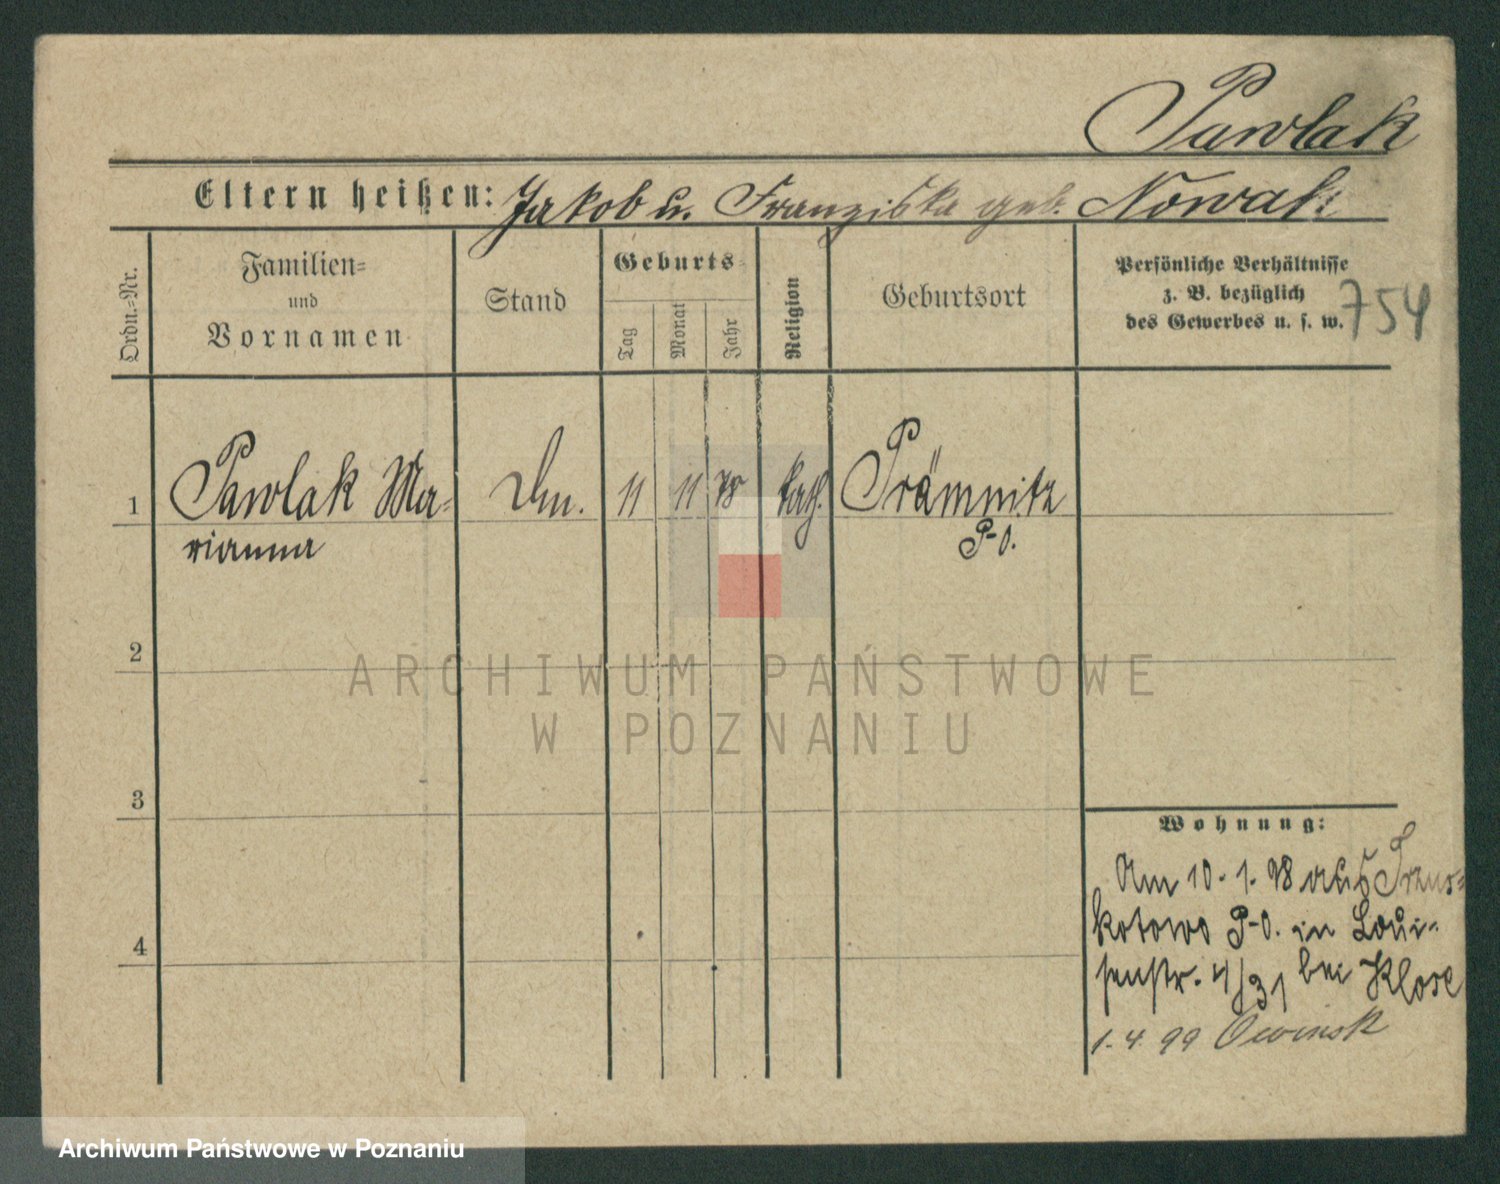 Pawlak
Eltern heißen: Jakob u. Franziska geb. Nowak
Ordn.-Nr.
Familien-
und
Vornamen
Stand
Geburts-
Tag
Monat
Jahr
Religion
Geburtsort
Persönliche Verhältnisse
z. B. bezüglich
des Gewerbes u. s. w.
754
1 Pawlak Ma- 11 11 78 kath. Prämnitz
rianna P-O.
2
3
4
Wohnung:
Am 10. 1. 98 aus Trzus-
kotowo P-O. in Loui-
senstr. 4/31 bei Klose
1. 4. 99 Owinsk
ARCHIWUM PAŃSTWOWE
W POZNANIU
Archiwum Państwowe w Poznaniu